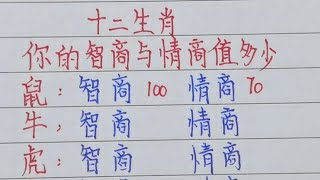 十二生肖
你的智商与情商值多少
鼠：智商100 情商70
牛：智商 情商
虎：智商 情商